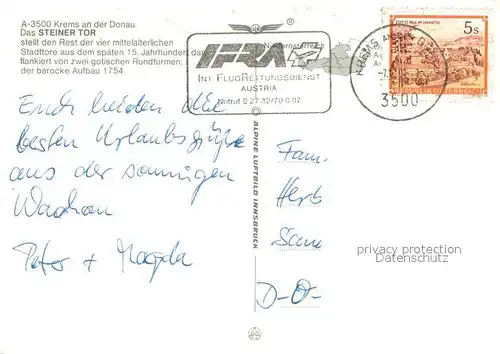 A-3500 Krems an der Donau.
Das STEINER TOR
stellt den Rest der vier mittelalterlichen
Stadttore aus dem späten 15. Jahrhundert dar,
flankiert von zwei gotischen Rundtürmen;
der barocke Aufbau 1754
Niederösterreich
IFRA
INT FLUGRETTUNGSDIENST
AUSTRIA
Notruf 0 27 32/70 0 07
KREMS AN DER
3500
5s
REPUBLIK ÖSTERREICH
ALPINE LUFTBILD INNSBRUCK
Euch beiden die
besten Urlaubsgrüße
aus der sonnigen
Wachau
Peter + Magda
Fam.
Herb
Sam
D-O-
privacy protection
Datenschutz